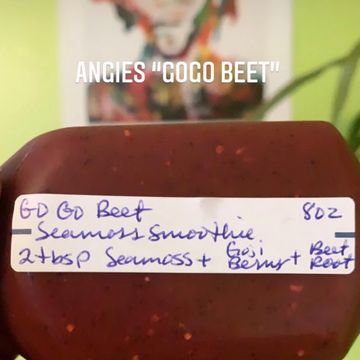 ANGIES "GOGO BEET"
GO GO Beet 8oz
Seamoss Smoothie
2 tbsp Seamoss + Goji Berry + Beet Root